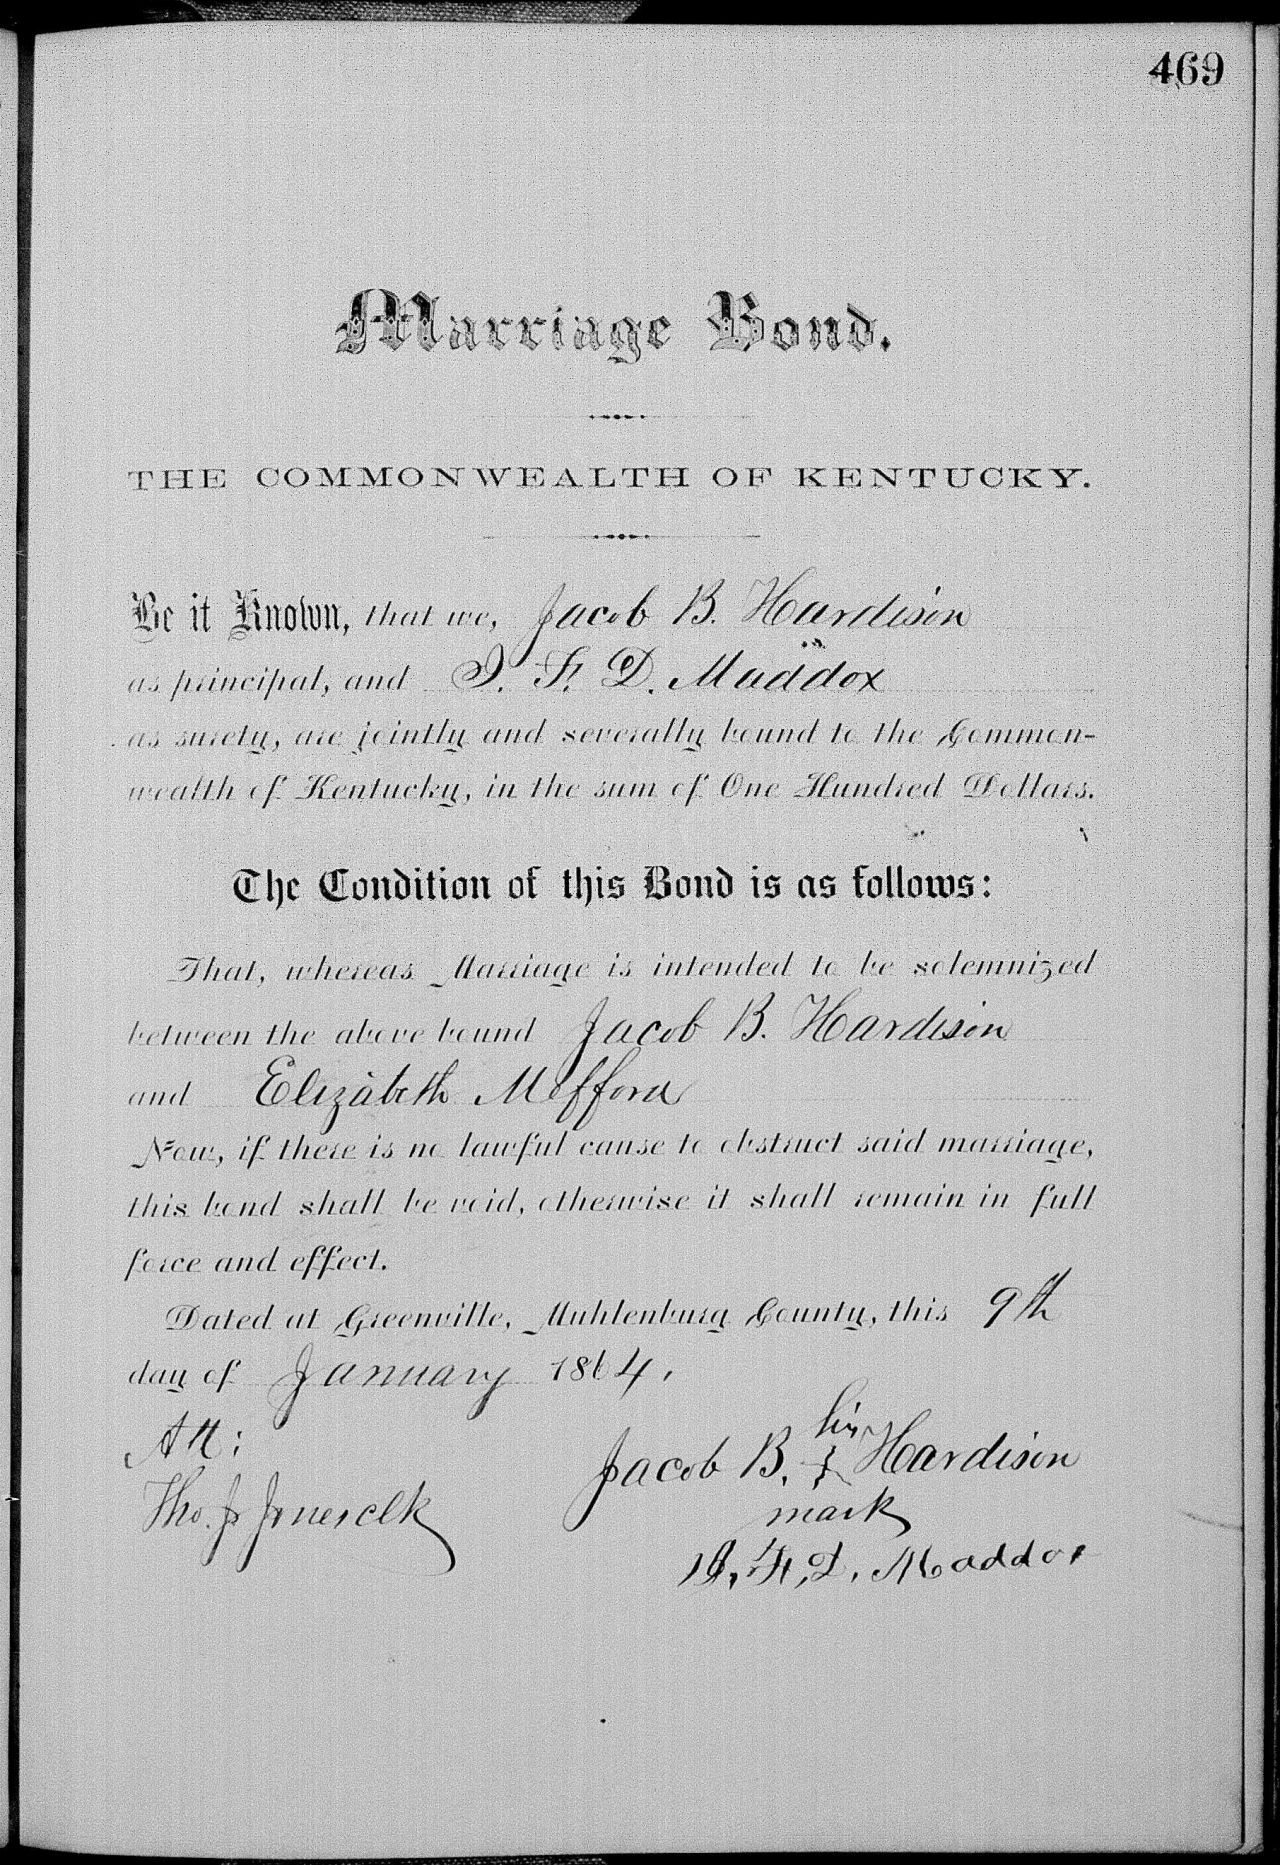 469
Marriage Bond.
THE COMMONWEALTH OF KENTUCKY.
Be it Known, that we, Jacob B. Hardison
as principal, and J. F. D. Maddox
as surety, are jointly and severally bound to the Common-
wealth of Kentucky, in the sum of One Hundred Dollars.
The Condition of this Bond is as follows:
That, whereas Marriage is intended to be solemnized
between the above bound Jacob B. Hardison
and Elizabeth Mefford
Now, if there is no lawful cause to obstruct said marriage,
this bond shall be void, otherwise it shall remain in full
force and effect.
Dated at Greenville, Muhlenburg County, this 9th
day of January 1864.
Att:
his
Jacob B. Hardison
Tho. J. Jones clk
mark
F. D. Maddox